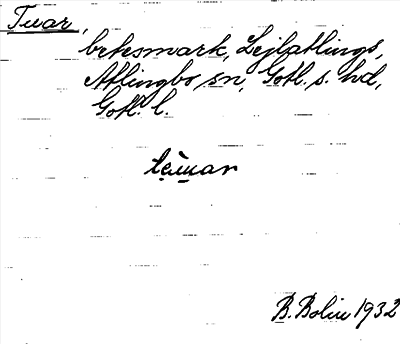 Tuar,
betesmark, Lejlatlings,
Atlingbo sn, Gotl. s. hd,
Gotl. l.
B. Bolin 1932